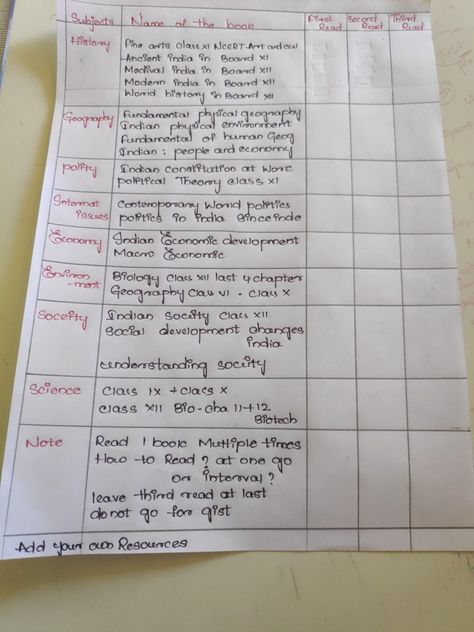 Subjects Name of the book First Read Second Read Third Read
History Fine arts class XI NCERT Art and cul
Ancient india in Board XI
Medival india in Board XII
Modern india in Board XII
World history in Board XII
Geography Fundamental physical geography
Indian physical environment
Fundamental of human Geog
Indian : people and economy
polity Indian Constitation at Work
political Theory class XI
Internat issues Contemporary World politics
politics in india since inde
Economy Indian Economic development
Macro Economic
Environ -ment Biology Class XII last 4 chapter
Geography Class VI - Class X
Soceity Indian Socity Class XII
Social development changes
india
understanding socity
Science Class IX + Class X
Class XII Bio - cha 11+12
Biotech
Note Read 1 book Multiple times
How to Read ? at one go
or interval ?
leave third read at last
do not go for gist
Add your own Resources